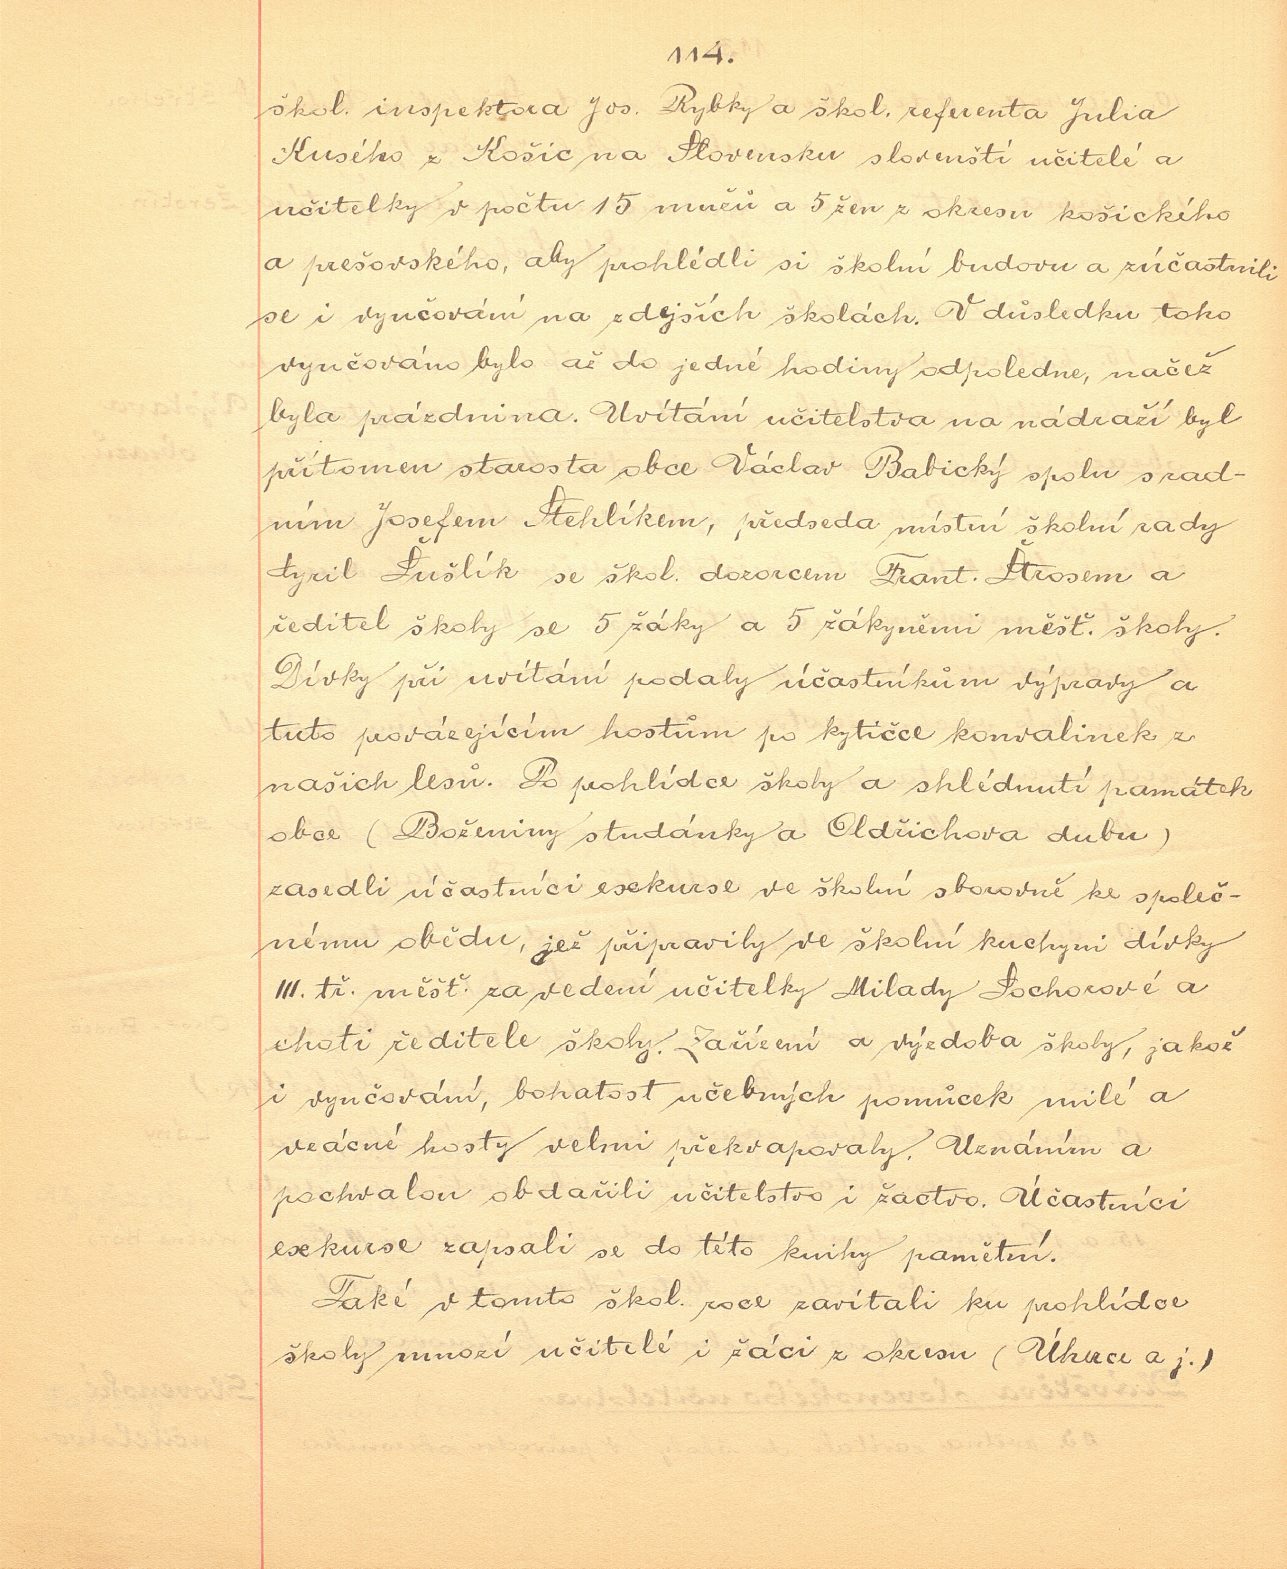 114.
škol. inspektora Jos. Rybky a škol. referenta Julia
Kusého z Košic na Slovensku slovenští učitelé a
učitelky v počtu 15 mužů a 5 žen z okresu košického
a prešovského, aby prohlédli si školní budovu a zúčastnili
se i vyučování na zdejších školách. V důsledku toho
vyučováno bylo až do jedné hodiny odpoledne, načež
byla prázdnina. Uvítání učitelstva na nádraží byl
přítomen starosta obce Václav Babický spolu s rad-
ním Josefem Stehlíkem, předseda místní školní rady
Cyril Šušlík se škol. dozorcem Frant. Štrosem a
ředitel školy se 5 žáky a 5 žákyněmi měšť. školy.
Dívky při uvítání podaly účastníkům výpravy a
tuto provázejícím hostům po kytičce konvalinek z
našich lesů. Po prohlídce školy a shlédnutí památek
obce (Boženiny studánky a Oldřichova dubu)
zasedli účastníci exkurse ve školní sborovně ke společ-
nému obědu, jež připravily ve školní kuchyni dívky
III. tř. měšť. za vedení učitelky Milady Sochorové a
choti ředitele školy. Zařízení a výzdoba školy, jakož
i vyučování, bohatost učebných pomůcek milé a
vzácné hosty velmi překvapovaly. Uznáním a
pochvalou obdařili učitelstvo i žactvo. Účastníci
exkurse zapsali se do této knihy pamětní.
Také v tomto škol. roce zavítali ku prohlídce
školy mnozí učitelé i žáci z okresu (Úherce a j.)